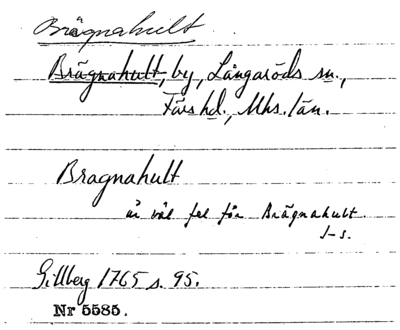 Brägnahult
Brägnahult, by, Långaröds sn.,
Färs hd., Mhs. län.
Bragnahult
är väl fel för Brägnahult.
J-s.
Gillberg 1765 s. 95.
Nr 5585.